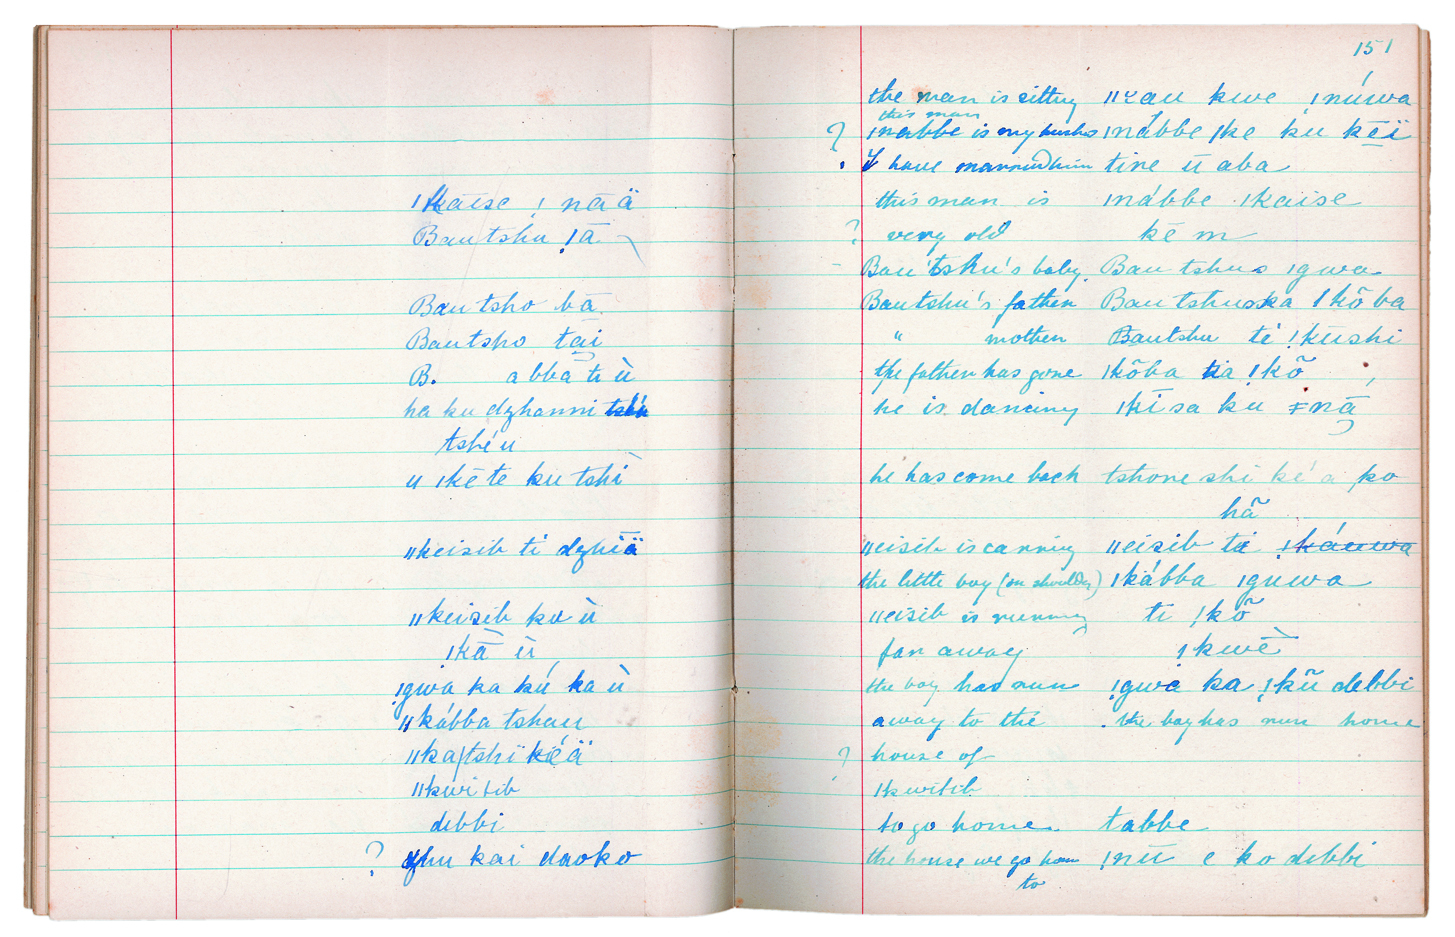 ǀkaise ǃ nāä
Bautshu ǃā
Bautsho bā
Bautsho tāi
B. abba ti ù
ha ku dzhanni
tshéu
u ǀkē te ku tshì
ǁkeisib ti dzhiä
ǁkeisib ko ù
ǃkā ù
ǃgwa ka kú ka ù
ǁkábba tshau
ǁka/tshi kéä
ǁkwisib
debbi
? kai daoko
151
the man is sitting ǁkau kwe ǃnúwa
this man
? ǀnabbe is my husb ǀnábbe ǀke ku kēï
I have married him tire ū aba
this man is ǀnábbe ǀkaise
? very old kē m
Bautshu's baby Bautshus ǀgwa
Bautshu's father Bautshuska ǀkõba
" mother Bautshu te ǃkūshi
the father has gone ǀkõba ka ǃkõ
he is dancing ǀkī sa ku ǂnā
he has come back tshone shi ké a ko
hã
ǁeisib is carrying ǁeisib ta ǃkáuwa
the little boy (on shoulder) ǀkábba ǀguwa
ǁeisib is running ti ǃkõ
far away ǃkwē
the boy has run ǃgwa ka ǃkũ debbi
away to the the boy has run home
? house of
ǁkwisib
to go home tabbe
the house we go hom ǃnū e ko debbi
to